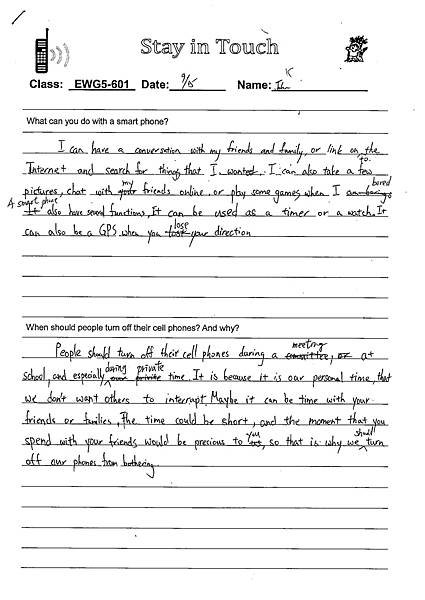 Stay in Touch
Class: EWG5-601 Date: 9/5 Name:
What can you do with a smart phone?
I can have a conversation with my friends and family, or link on the
Internet and search for things that I wanted to. I can also take a few
pictures, chat with my friends online, or play some games when I bored
A smart phone also have several functions, It can be used as a timer or a watch. It
can also be a GPS when you lose your direction
When should people turn off their cell phones? And why?
People should turn off their cell phones during a meeting, at
school, and especially during private time. It is because it is our personal time, that
we don't want others to interrupt. Maybe it can be time with your
friends or families, The time could be short, and the moment that you
spend with your friends would be precious to you, so that is why we should turn
off our phones from bothering.